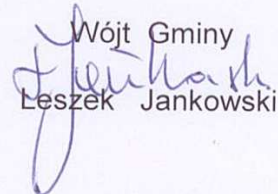 Wójt Gminy
Leszek Jankowski